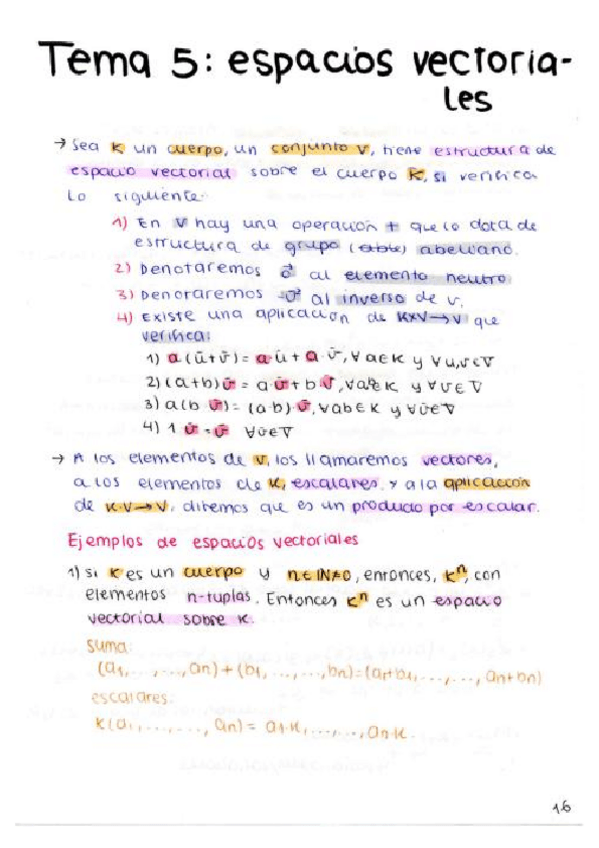 Tema 5: espacios vectoria-
les
→ Sea K un cuerpo, un conjunto V, tiene estructura de
espacio vectorial sobre el cuerpo K, si verifica
lo siguiente:
1) En V hay una operación + que lo dota de
estructura de grupo (able) abeliano.
2) Denotaremos o⃗ al elemento neutro
3) Denotaremos -v⃗ al inverso de v.
4) Existe una aplicación de K×V→V que
verifica:
1) a(ū+v̄) = a·ū + a·v̄, ∀a∈K y ∀u,v∈V
2) (a+b)v̄ = a·v̄+b·v̄, ∀a,b∈K y ∀v∈V
3) a(b·v̄) = (a·b)·v̄, ∀ab∈K y ∀v̄∈V
4) 1·v̄=v̄ ∀v̄∈V
→ A los elementos de V, los llamaremos vectores,
a los elementos de K, escalares. y a la aplicación
de K·V→V, diremos que es un producto por escalar.
Ejemplos de espacios vectoriales
1) si K es un cuerpo y n∈ℕ≠0, entonces, Kⁿ, con
elementos n-tuplas. Entonces Kⁿ es un espacio
vectorial sobre K.
suma:
(a₁,...,...,an)+(b₁,...,...,bn)=(a₁+b₁,...,...,an+bn)
escalares:
K(a₁,...,...,an)= a₁·K,...,...,an·K.
16